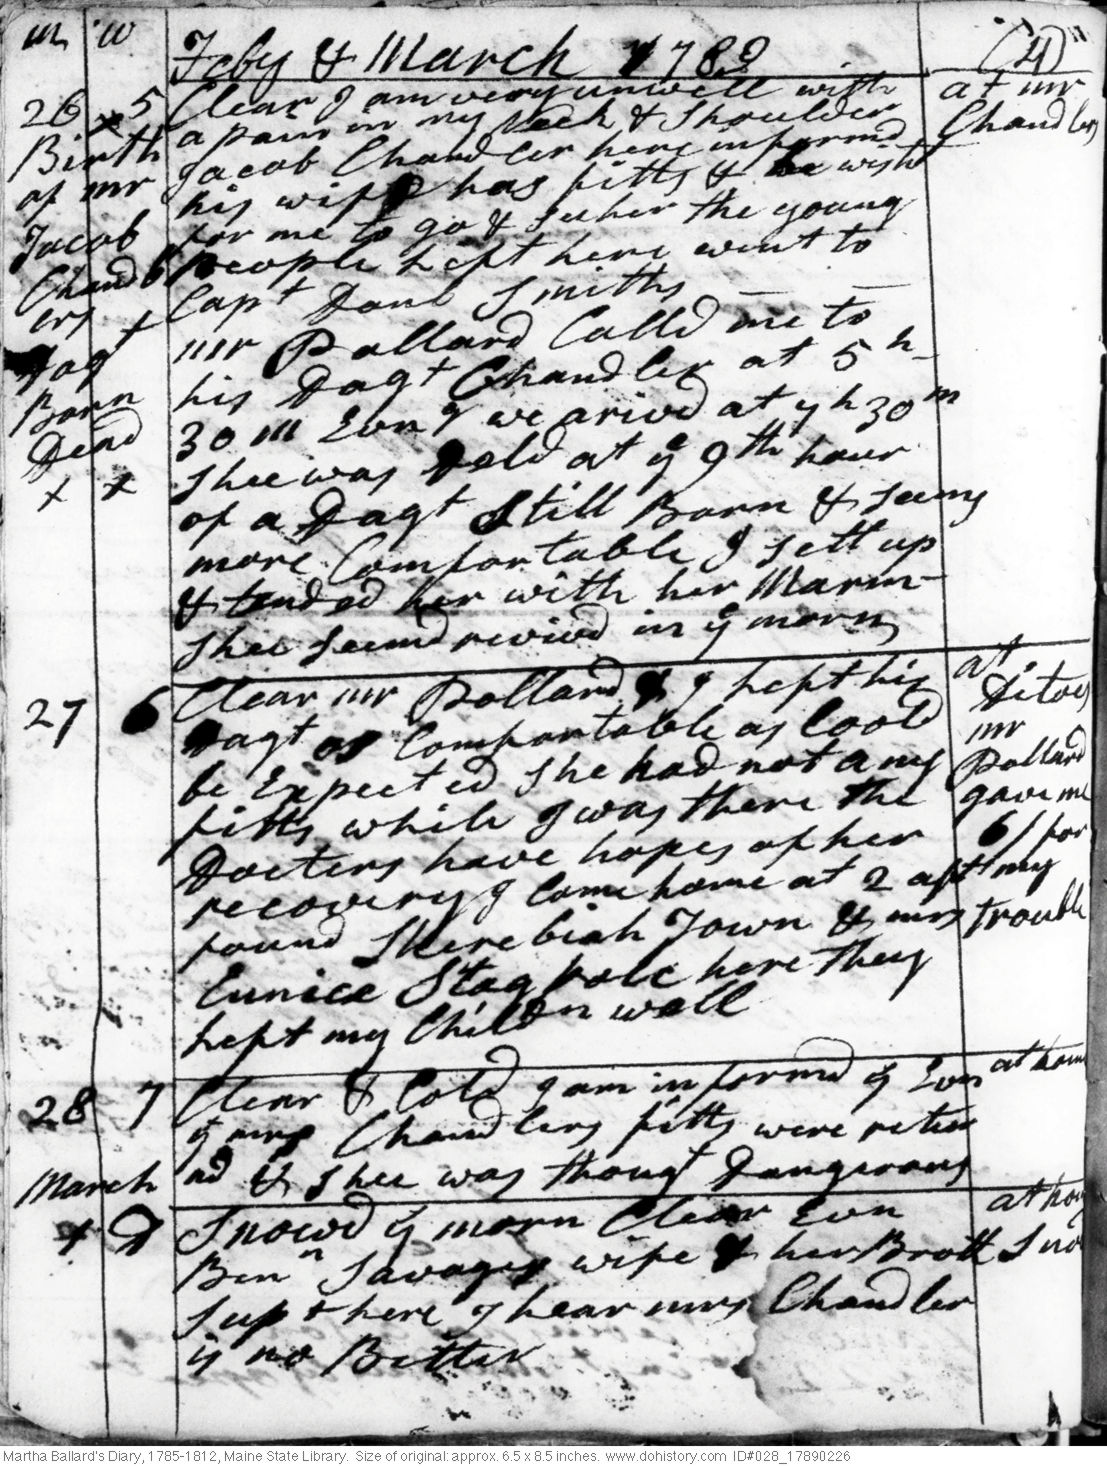 m w Feby & March 1789 (4)
26 x 5 Clear I am very unwell with at mr
Birth a pain in my Neck & Shoulder Chandlers
of mr Jacob Chandler here informd
Jacob his wife has fitts & he wisht
Chandl for me to go & see her the young
ers people kept here went to
Dagt Capt Danl Smiths
Born mr Pollard Calld me to
Dead his Dagt Chandler at 5 h
x x 30 m Evng we arivd at 7 h 30 m
Shee was Deld at ye 9th hour
of a Dagt Still Born & seems
more Comfortable I sett up
& tended her with her Marm
Shee seemd revivd in ye morn
27 6 Clear mr Pollard & I kept his at
Dagt as Comfortable as Coold Ditoes
be Expected she had not any mr
fitts while I was there the Pollard
Docters have hopes of her gave me
recovery I Came home at 2 aft 6/ for
found Sherebiah Town & mrs my
Eunice Stagpole here they trouble
kept my Childn well
28 7 Clear & Cold I am informd ys Evn at home
yt mrs Chandlers fitts were retur
nd & shee was thougt Dangerous
March
x D Snowd ys morn Clear Evn at home
Benn Savages wife & her Broth Snow
Supt here I hear mrs Chandler
is no Better
Martha Ballard's Diary, 1785-1812, Maine State Library. Size of original: approx. 6.5 x 8.5 inches. www.dohistory.com ID#028_17890226